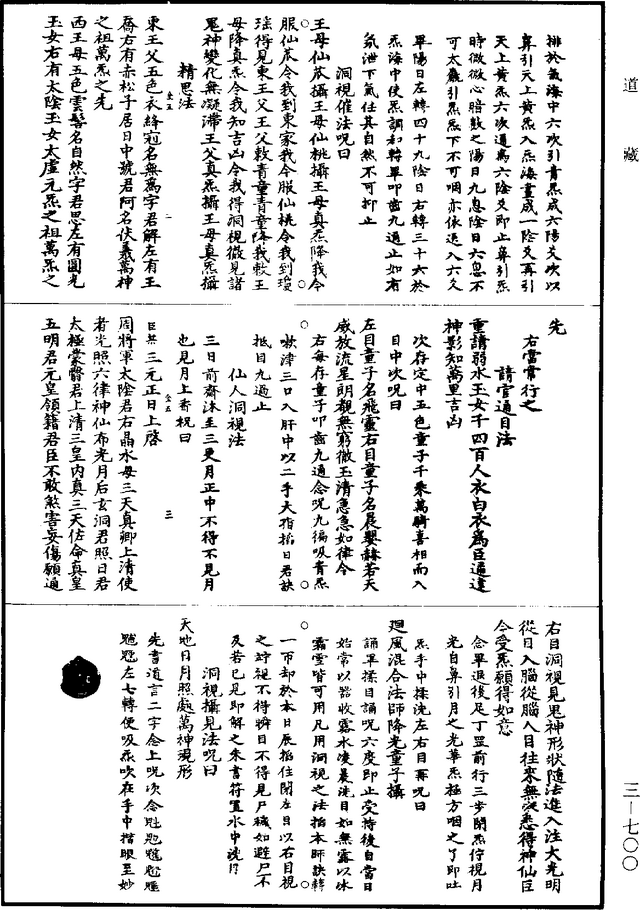 道藏
排於氣海中六次引青炁成六陽爻次以
鼻引天上黃炁入炁海畫成一陰爻再引
天上黃炁六次通爲六陰爻即止鼻引炁
時微微心暗數之陽日九息陰日六息不
可太麄引炁炁下不可咽亦依送入六爻
畢陽日左轉四十九陰日右轉三十六於
炁海中使炁調和轉畢叩齒九通止如有
氣泄下氣任其自然不可抑止
洞視催法呪曰
王母仙苽攝王母仙桃攝王母真炁降我令
服仙苽令我到東家我令服仙桃令我到瓊
瑤得見東王父王父敕青童青童降我軟王
母降真炁令我知吉凶令我得洞視微見諸
鬼神變化無凝滯王父真炁攝王母真炁攝
精思法
東王父五色衣絳冠名無爲字君解左有王
喬右有赤松子居日中號君阿名伏羲萬神
之祖萬炁之先
西王母五色雲髻名自然字君思左有圓光
玉女右有太陰玉女太虛元炁之祖萬炁之
先
右當常行之
請官通目法
重請弱水玉女千四百人衣白衣爲臣通達
神影知萬里吉凶
次存定中五色童子千乘萬騎喜相而入
目中次呪曰
左目童子名飛靈右目童子名晨嬰赫若天
威放流星朗覩無窮徹玉清急急如律令
右每存童子叩齒九通念呪九徧吸青炁
嚥津三口入肝中以二手大指掐日君訣
抵目九遍止
仙人洞視法
三日前齋沐至三更月正中不得不見月
也見月上香祝曰
臣某三元正日上啓
周將軍太陰君右晶水母三天真卿上清使
者光照六律神仙布光月后玄洞君照日君
太極棠翳君上清三皇內真三天佐命真皇
五明君元皇領籍君臣不敢煞害妄傷願通
右目洞視見鬼神形狀隨法進入注大光明
從目入腦從腦入目往來無泛悉得神仙臣
令受炁願得如意
念畢退後足丁罡前行三步閉炁佇視月
光自鼻引月之光華炁極方咽之了即吐
炁手中揉洗左右目再呪曰
廻風混合法師降光童子攝
誦畢揉目誦呪六度即止受持後自當日
始常以器收露水凌晨洗目如無露以冰
霜雪皆可用凡用洞視之法掐本師訣轉
一帀却於本日辰掐住閉左目以右目視
之竚視不得瞬目不得見尸穢如避尸不
及若已見即解之朱書符置水中洗吖
洞視攝見法呪曰
天地日月照處萬神現形
先書道言二字念上呪次念
左七轉便吸炁吹在手中揩眼至妙
三一七〇〇